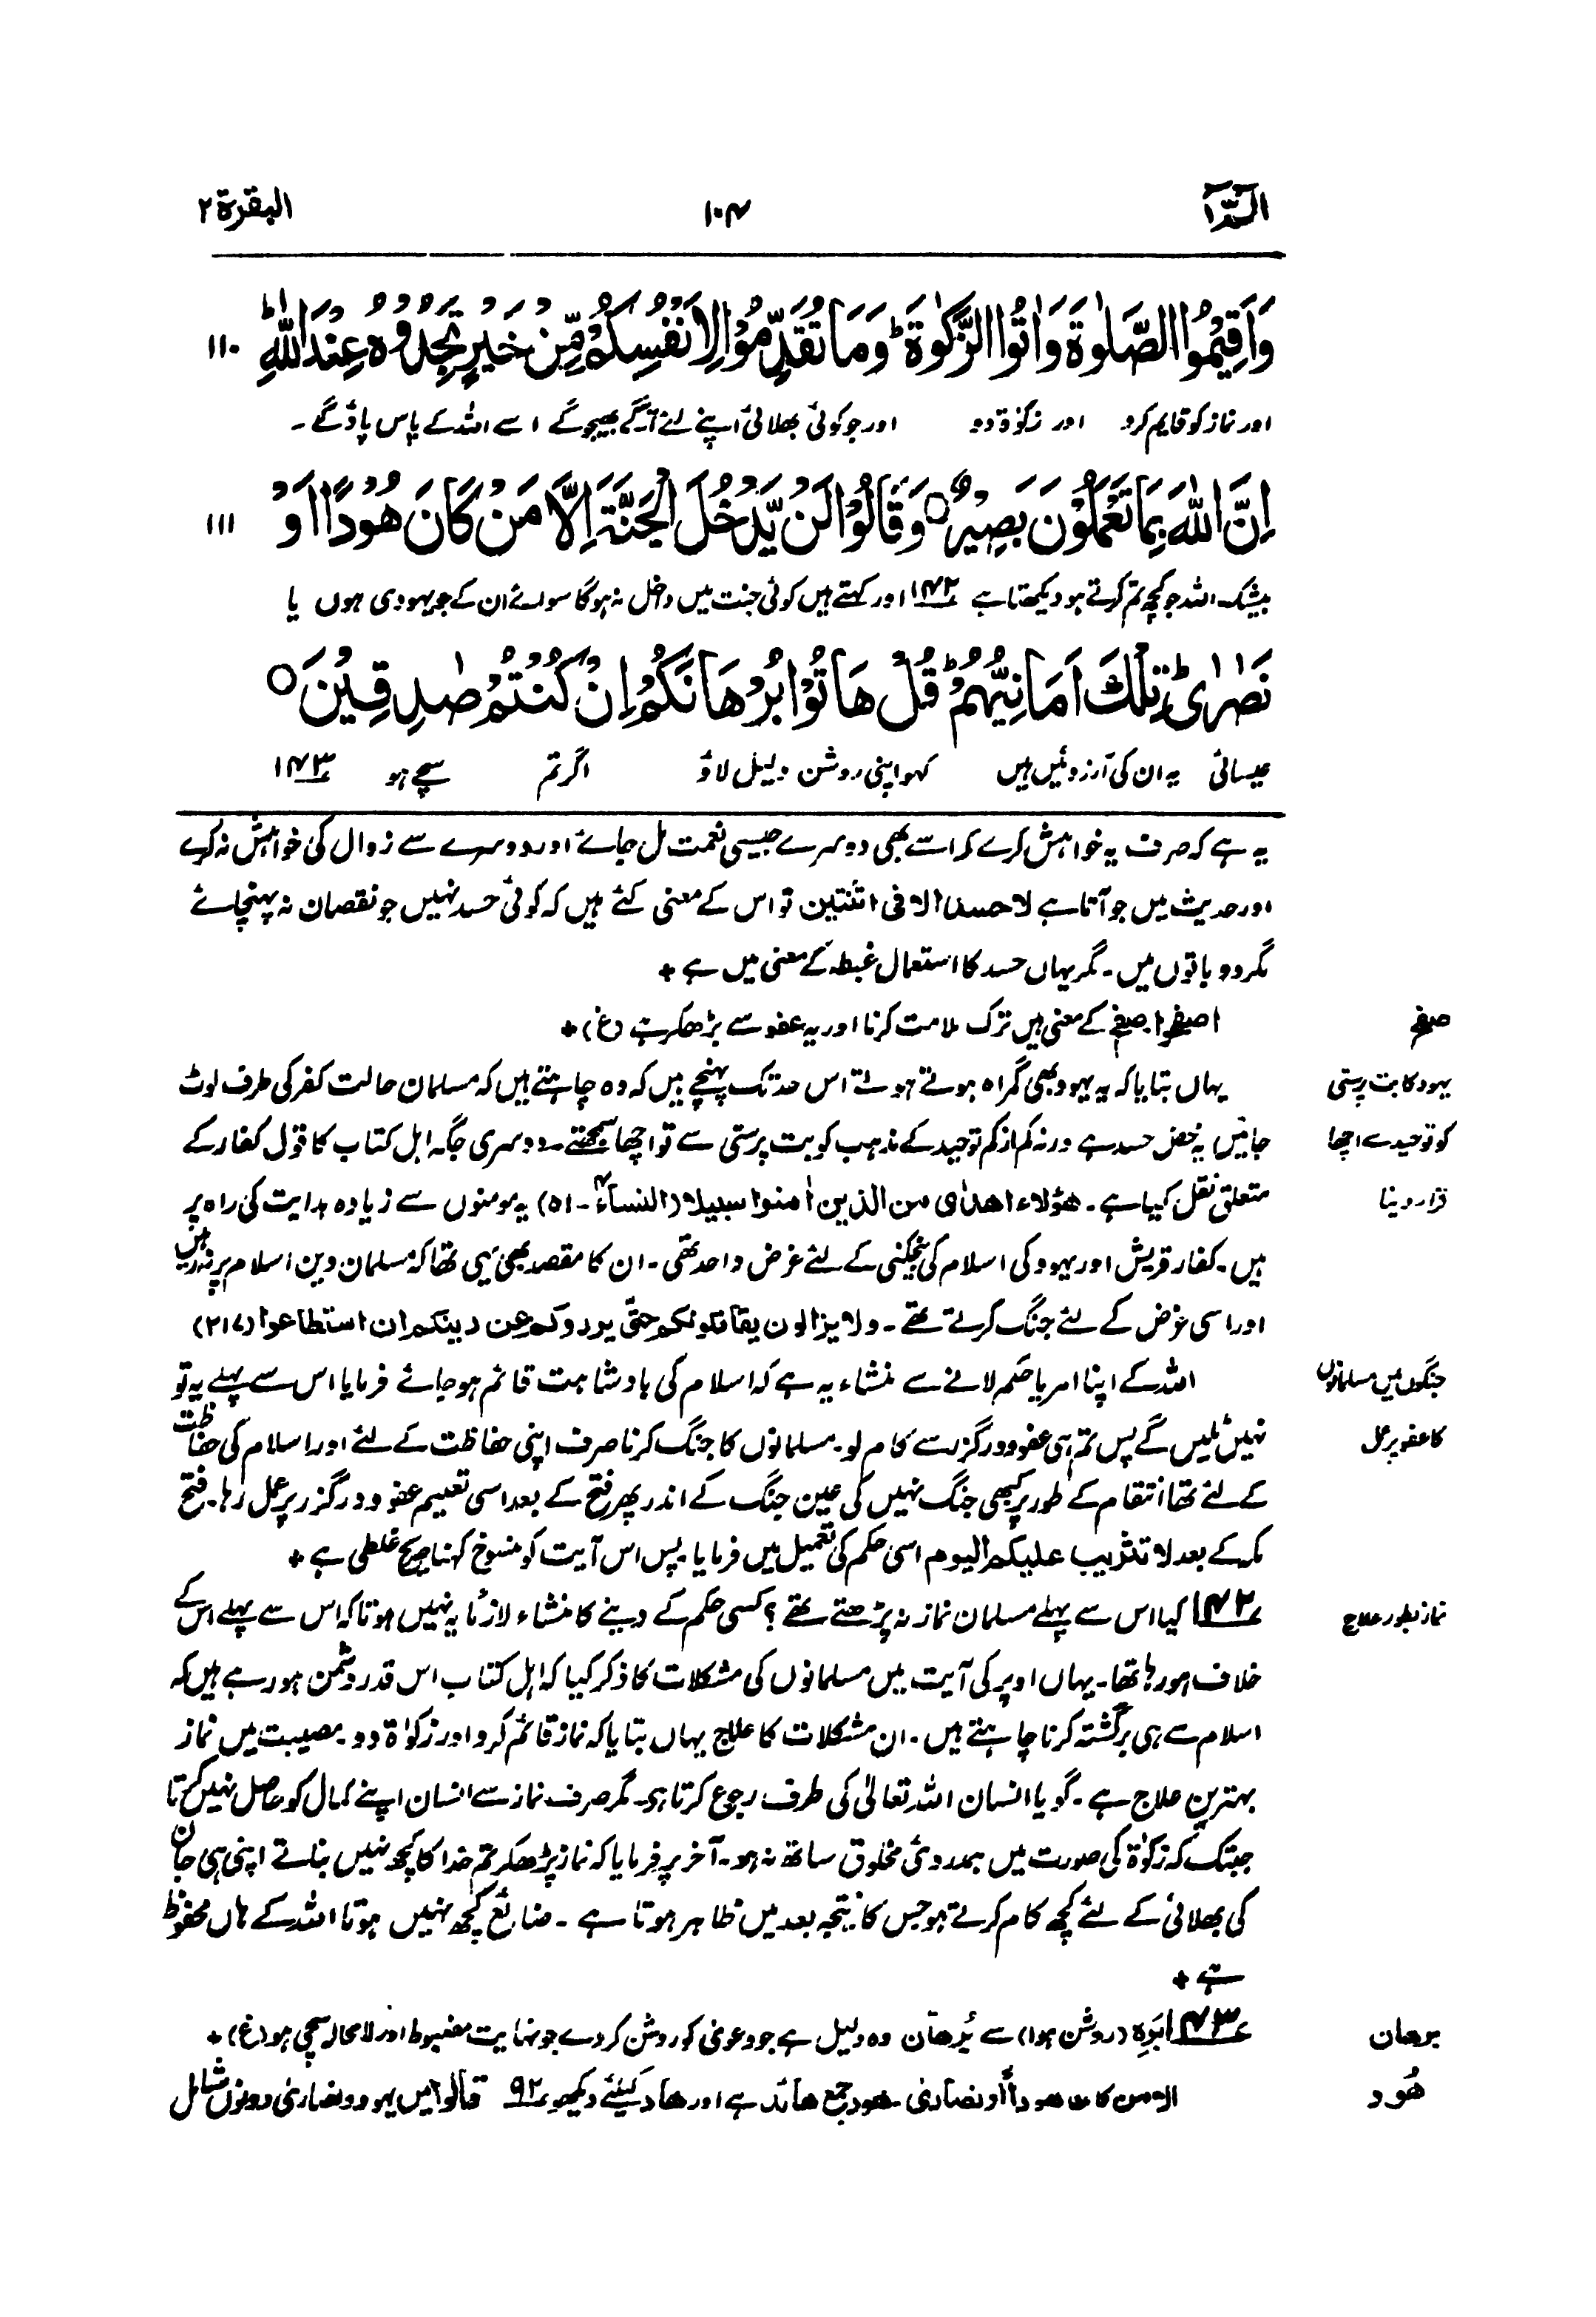 الٓمّٓ ١ ١٠٤ البقرة ٢
وَاَقِيْمُوا الصَّلٰوةَ وَاٰتُوا الزَّكٰوةَ ؕ وَمَا تُقَدِّمُوْا لِاَنْفُسِكُمْ مِّنْ خَيْرٍ تَجِدُوْهُ عِنْدَ اللّٰهِ ؕ ١١٠
اور نماز کو قایم کرو اور زکوٰۃ دو اور جو کوئی بھلائی اپنے لئے آگے بھیجو گے اسے اللہ کے پاس پاؤ گے۔
اِنَّ اللّٰهَ بِمَا تَعْمَلُوْنَ بَصِيْرٌ ○ وَقَالُوْا لَنْ يَّدْخُلَ الْجَنَّةَ اِلَّا مَنْ كَانَ هُوْدًا اَوْ ١١١
بیشک اللہ جو کچھ تم کرتے ہو دیکھتا ہے ۱۴۲ اور کہتے ہیں کوئی جنت میں داخل نہ ہوگا سوائے ان کے جو یہودی ہوں یا
نَصٰرٰى ؕ تِلْكَ اَمَانِيُّهُمْ ؕ قُلْ هَاتُوْا بُرْهَانَكُمْ اِنْ كُنْتُمْ صٰدِقِيْنَ ○
عیسائی یہ ان کی آرزوئیں ہیں کہو اپنی روشن دلیل لاؤ اگر تم سچے ہو ۱۴۳
یہ ہے کہ صرف یہ خواہش کرے کہ اسے بھی دوسرے جیسی نعمت مل جائے اور دوسرے سے زوال کی خواہش نہ کرے
اور حدیث میں جو آتا ہے لا حسد الا فی اثنتین تو اس کے معنی کئے ہیں کہ کوئی حسد نہیں جو نقصان نہ پہنچائے
مگر دو باتوں میں۔ مگر یہاں حسد کا استعمال غبطہ کے معنی میں ہے +
صفح
اصفحوا صفح کے معنی ہیں ترک ملامت کرنا اور یہ عفو سے بڑھکر ہے (غ) +
یہود کا بت پرستی
یہاں بتایا کہ یہ یہود بھی گمراہ ہوتے ہوتے اس حد تک پہنچے ہیں کہ وہ چاہتے ہیں کہ مسلمان حالت کفر کی طرف لوٹ
کو توحید سے اچھا
جائیں یہ محض حسد ہے ورنہ کم از کم توحید کے مذہب کو بت پرستی سے تو اچھا سمجھتے۔ دوسری جگہ اہل کتاب کا قول کفار کے
قرار دینا
متعلق نقل کیا ہے۔ ھؤلاء اھدٰی من الذین اٰمنوا سبیلا (النساء ۴۔۵۱) یہ مومنوں سے زیادہ ہدایت کی راہ پر
ہیں۔ کفار قریش اور یہود کی اسلام کی بیخکنی کے لئے غرض واحد تھی۔ ان کا مقصد بھی یہی تھا کہ مسلمان دین اسلام پر نہ رہیں
اور اسی غرض کے لئے جنگ کرتے تھے۔ ولا یزالون یقاتلونکم حتّٰی یردوکم عن دینکم ان استطاعوا (۲۱۷)
جنگوں میں مسلمانوں
اللہ کے اپنا امر یا حکم لانے سے منشاء یہ ہے کہ اسلام کی بادشاہت قائم ہو جائے فرمایا اس سے پہلے یہ تو
کا عفو پر عمل
نہیں ٹلیں گے پس تم ہی عفو و درگزر سے کام لو۔ مسلمانوں کا جنگ کرنا صرف اپنی حفاظت کے لئے اور اسلام کی حفاظت
کے لئے تھا انتقام کے طور پر کبھی جنگ نہیں کی عین جنگ کے اندر پھر فتح کے بعد اسی تعلیم عفو و درگزر پر عمل رہا۔ فتح
مکہ کے بعد لا تثریب علیکم الیوم اسی حکم کی تعمیل میں فرمایا پس اس آیت کو منسوخ کہنا صریح غلطی ہے +
نماز بطور علاج
۱۴۲ کیا اس سے پہلے مسلمان نماز نہ پڑھتے تھے؟ کسی حکم کے دینے کا منشاء لازماً یہ نہیں ہوتا کہ اس سے پہلے اس کے
خلاف ہو رہا تھا۔ یہاں اوپر کی آیت میں مسلمانوں کی مشکلات کا ذکر کیا کہ اہل کتاب اس قدر دشمن ہو رہے ہیں کہ
اسلام سے ہی برگشتہ کرنا چاہتے ہیں۔ ان مشکلات کا علاج یہاں بتایا کہ نماز قائم کرو اور زکوٰۃ دو۔ مصیبت میں نماز
بہترین علاج ہے۔ گویا انسان اللہ تعالیٰ کی طرف رجوع کرتا ہے۔ مگر صرف نماز سے انسان اپنے کمال کو حاصل نہیں کرتا
جبتک کہ زکوٰۃ کی صورت میں ہمدردئ مخلوق ساتھ نہ ہو۔ آخر پر فرمایا کہ نماز پڑھکر تم خدا کا کچھ نہیں بناتے اپنی ہی جان
کی بھلائی کے لئے کچھ کام کرتے ہو جس کا نتیجہ بعد میں ظاہر ہوتا ہے۔ ضائع کچھ نہیں ہوتا اللہ کے ہاں محفوظ
ہے +
برھان
۱۴۳ بَرِہَ (روشن ہوا) سے بُرھان وہ دلیل ہے جو دعویٰ کو روشن کر دے جو نہایت مضبوط اور لا محالہ سچی ہو (غ) +
ھُود
الا من کان ھوداً أو نصاریٰ۔ ھود جمع ھائد ہے اور ھاد کیلئے دیکھو ۹۲ قالوا میں یہود و نصاریٰ دونوں شامل